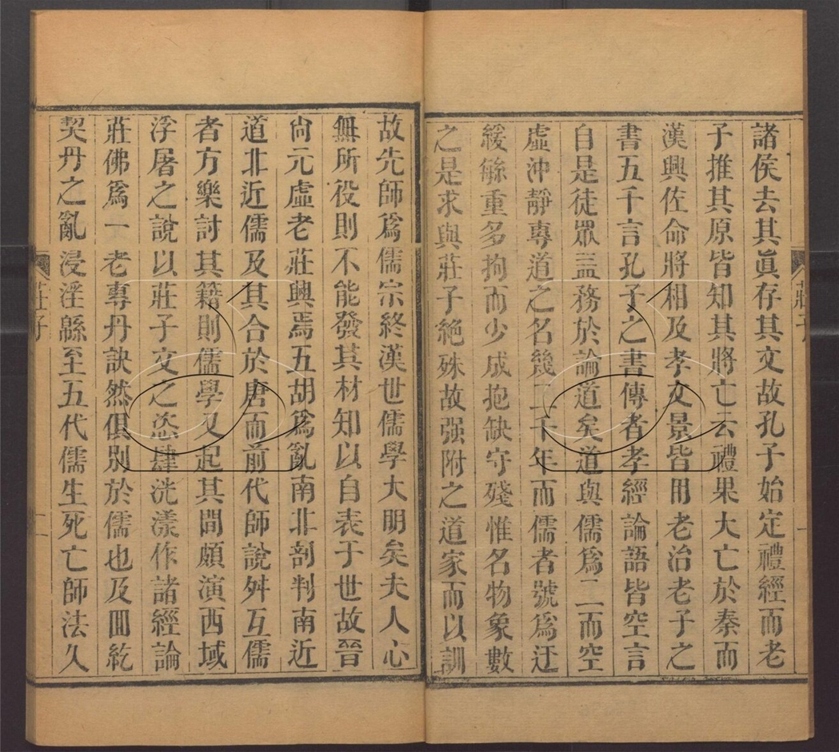 諸侯去其眞存其文故孔子始定禮經而老
子推其原皆知其將亡云禮果大亡於秦而
漢興佐命將相及孝文景皆用老治老子之
書五千言孔子之書傳者孝經論語皆空言
自是徒眾益務於論道矣道與儒爲二而空
虛沖靜專道之名幾二千年而儒者號爲迂
緩緐重多拘而少成抱缺守殘惟名物象數
之是求與莊子絶殊故强附之道家而以訓
故先師爲儒宗終漢世儒學大明矣夫人心
無所役則不能發其材知以自表于世故晉
尙元虛老莊興焉五胡爲亂南北剖判南近
道北近儒及其合於唐而前代師說舛互儒
者方樂討其籍則儒學又起其閒頗演西域
浮屠之說以莊子文之恣肆洸漾作諸經論
莊佛爲一老專丹訣然俱別於儒也及回紇
契丹之亂浸淫緜至五代儒生死亡師法久
莊子
一
莊子
二